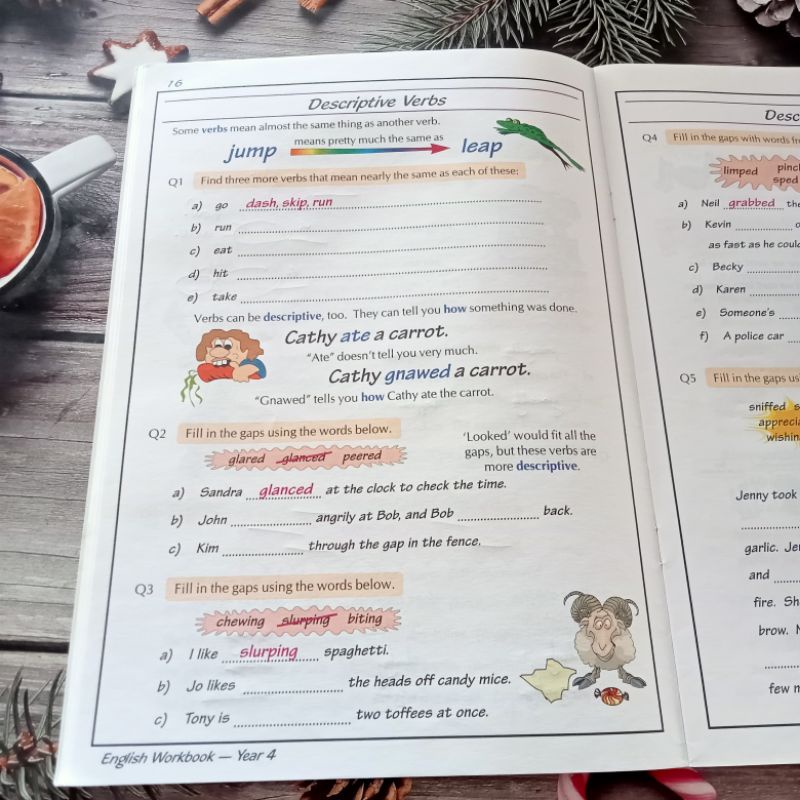 16
Descriptive Verbs
Some verbs mean almost the same thing as another verb.
jump means pretty much the same as leap
Q1 Find three more verbs that mean nearly the same as each of these:
a) go dash, skip, run
b) run
c) eat
d) hit
e) take
Verbs can be descriptive, too. They can tell you how something was done.
Cathy ate a carrot.
"Ate" doesn't tell you very much.
Cathy gnawed a carrot.
"Gnawed" tells you how Cathy ate the carrot.
Q2 Fill in the gaps using the words below.
glared glanced peered
'Looked' would fit all the
gaps, but these verbs are
more descriptive.
a) Sandra glanced at the clock to check the time.
b) John angrily at Bob, and Bob back.
c) Kim through the gap in the fence.
Q3 Fill in the gaps using the words below.
chewing slurping biting
a) I like slurping spaghetti.
b) Jo likes the heads off candy mice.
c) Tony is two toffees at once.
English Workbook — Year 4
Q4 Fill in the gaps with words
limped
sped
a) Neil grabbed
b) Kevin
as fast as he
c) Becky
d) Karen
e) Someone's
f) A police car
Q5 Fill in the gaps
sniffed
Jenny took
garlic.
and
fire.
brow.
few